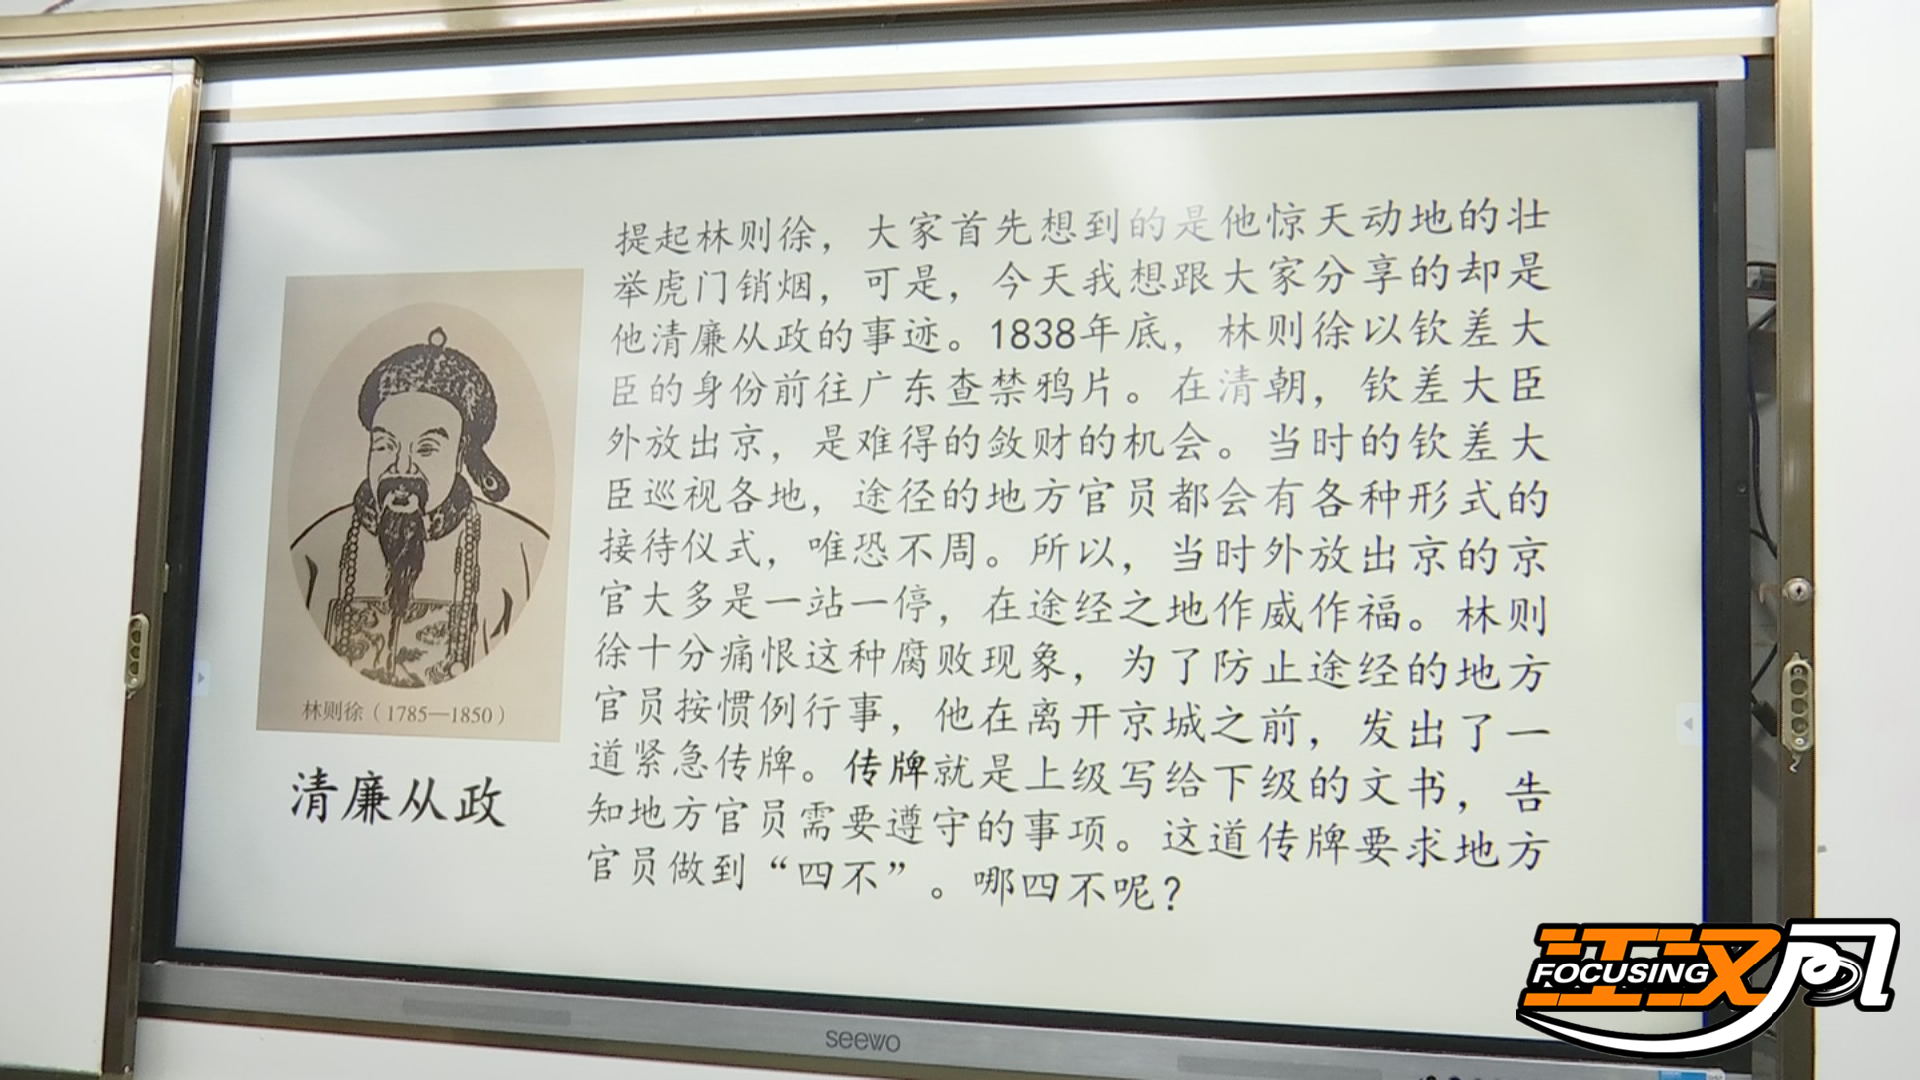 提起林则徐，大家首先想到的是他惊天动地的壮
举虎门销烟，可是，今天我想跟大家分享的却是
他清廉从政的事迹。1838年底，林则徐以钦差大
臣的身份前往广东查禁鸦片。在清朝，钦差大臣
外放出京，是难得的敛财的机会。当时的钦差大
臣巡视各地，途径的地方官员都会有各种形式的
接待仪式，唯恐不周。所以，当时外放出京的京
官大多是一站一停，在途经之地作威作福。林则
徐十分痛恨这种腐败现象，为了防止途经的地方
官员按惯例行事，他在离开京城之前，发出了一
道紧急传牌。传牌就是上级写给下级的文书，告
知地方官员需要遵守的事项。这道传牌要求地方
官员做到“四不”。哪四不呢？
林则徐（1785—1850）
清廉从政
seewo
江汉网
FOCUSING